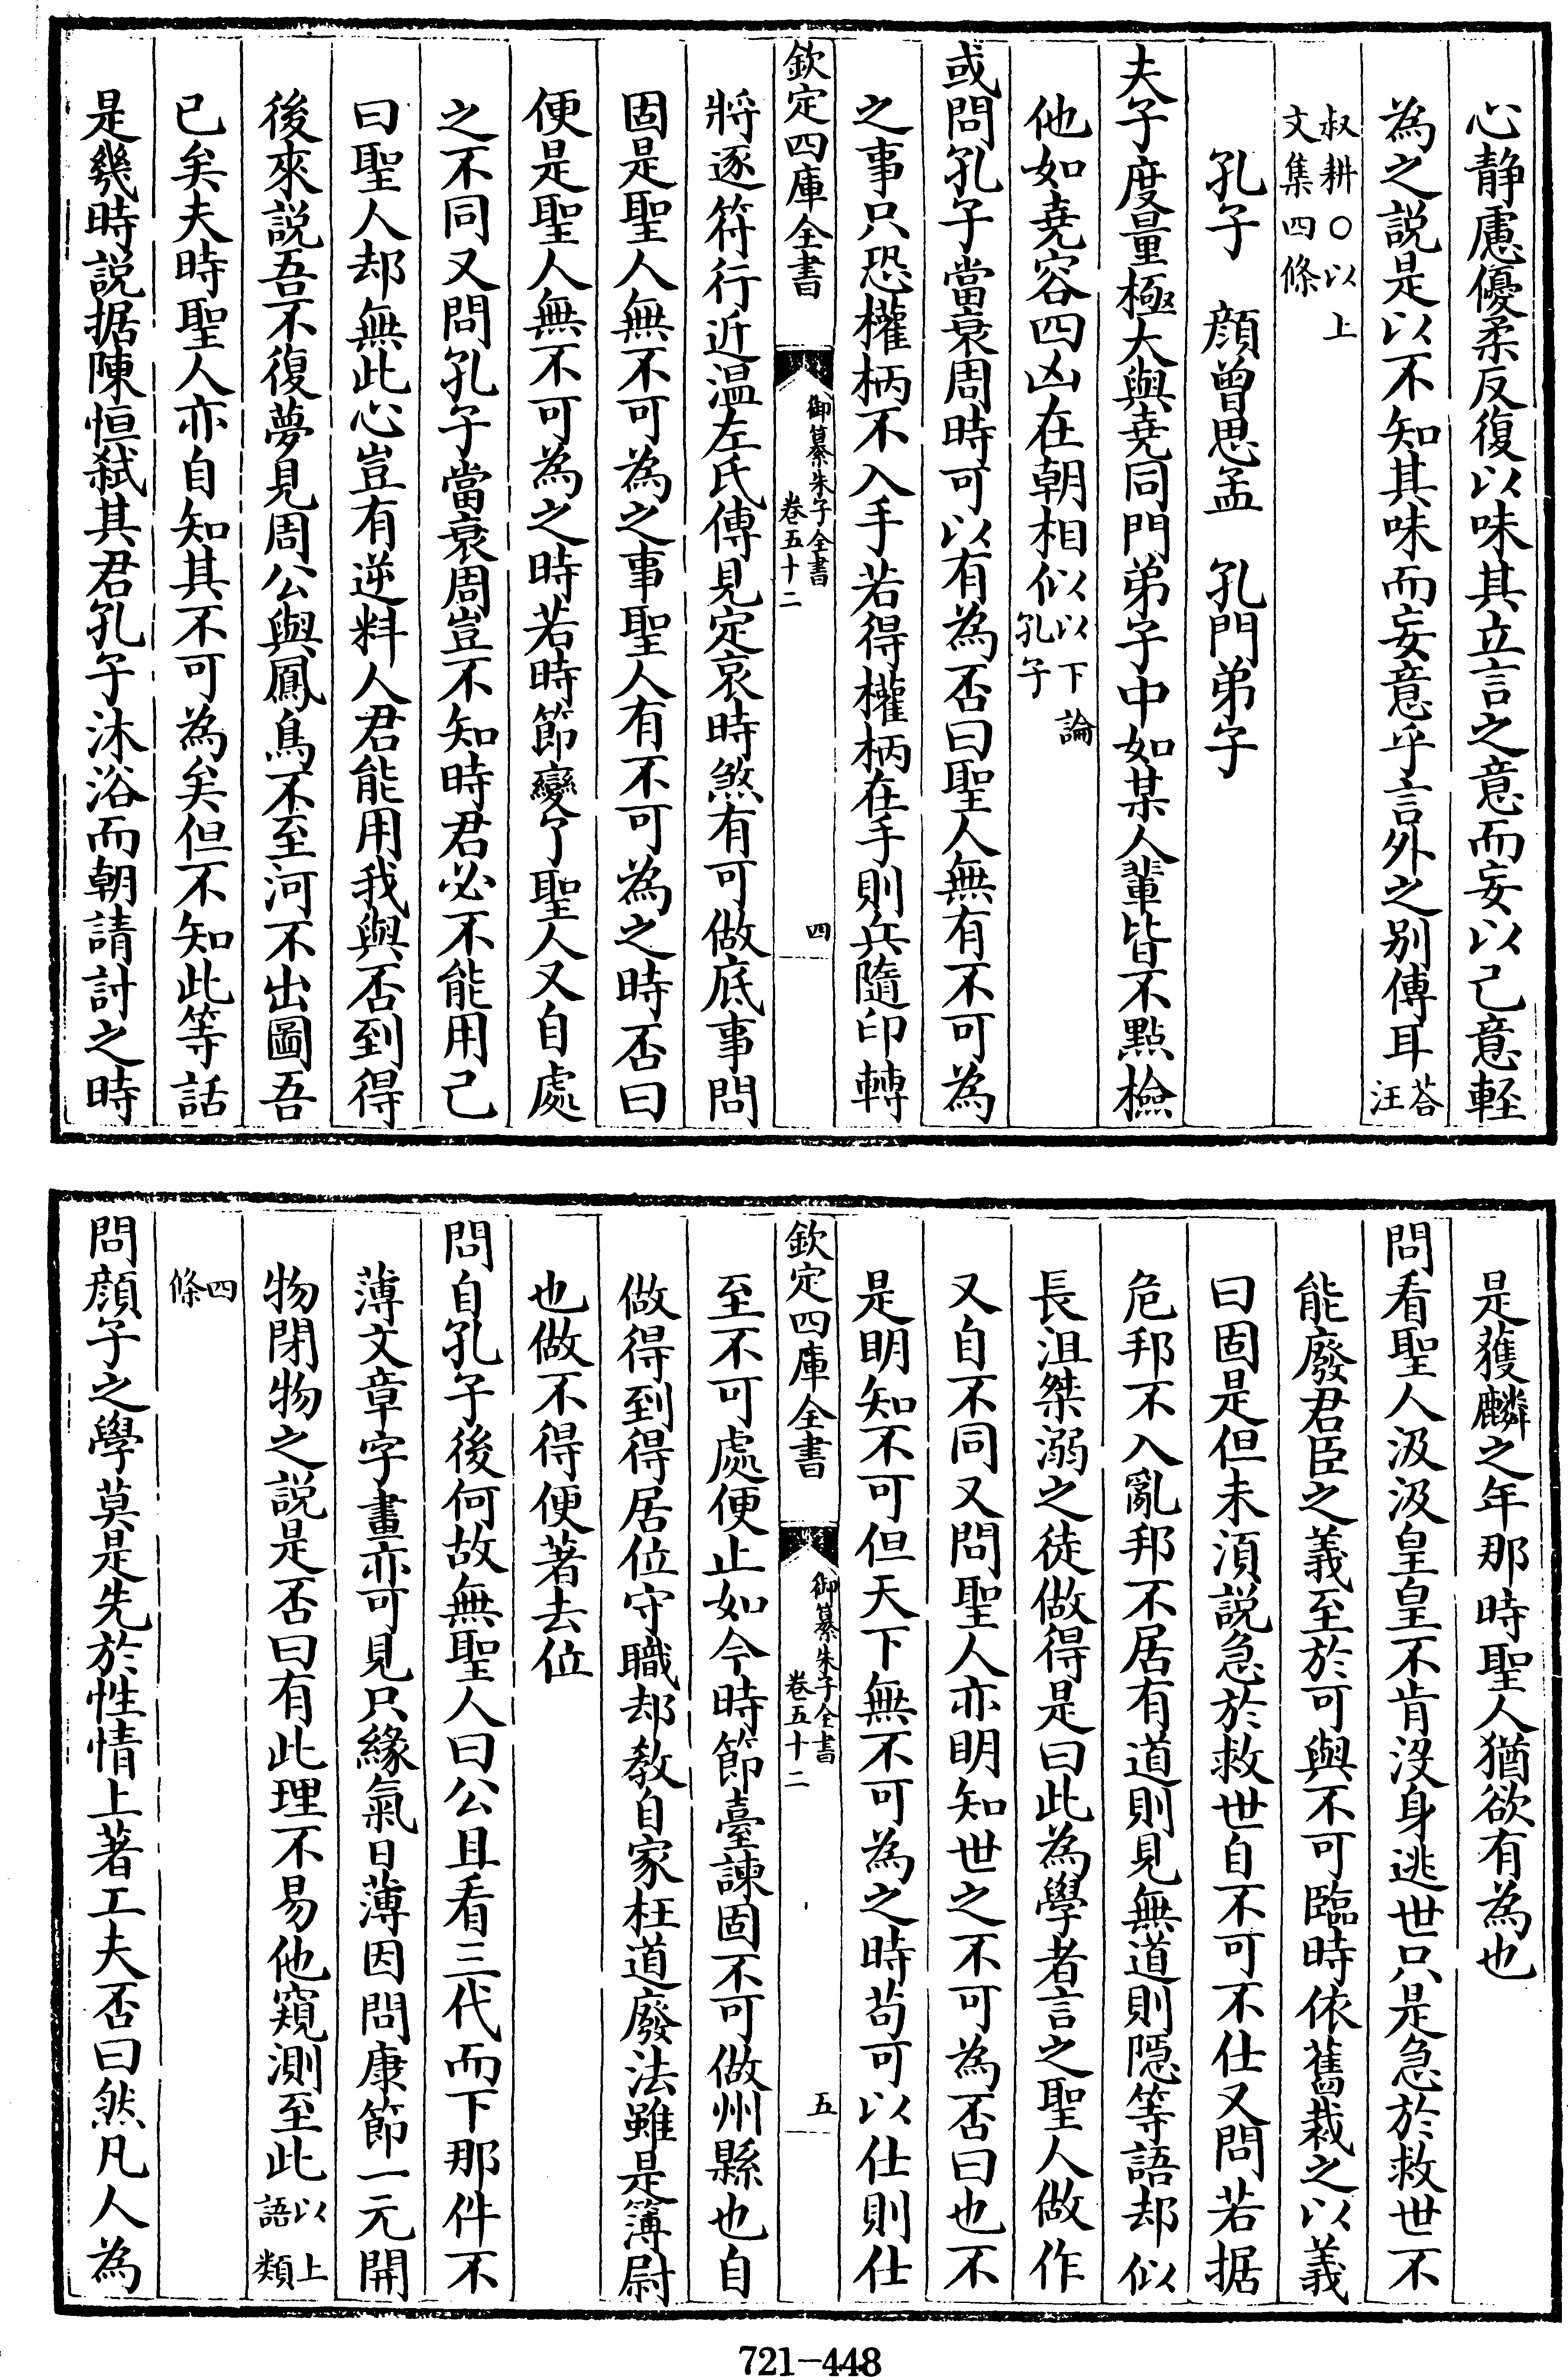 心静慮優柔反復以味其立言之意而妄以己意輕
為之説是以不知其味而妄意乎言外之别傳耳荅汪
叔耕○以上文集四條
孔子　顔曾思孟　孔門弟子
夫子度量極大與堯同門弟子中如某人輩皆不點檢
他如堯容四凶在朝相似以下論孔子
或問孔子當衰周時可以有為否曰聖人無有不可為
之事只恐權柄不入手若得權柄在手則兵隨印轉
欽定四庫全書　御纂朱子全書 卷五十二　四
將逐符行近温左氏傳見定哀時煞有可做底事問
固是聖人無不可為之事聖人有不可為之時否曰
便是聖人無不可為之時若時節變了聖人又自處
之不同又問孔子當衰周豈不知時君必不能用己
曰聖人却無此心豈有逆料人君能用我與否到得
後來説吾不復夢見周公與鳳鳥不至河不出圖吾
已矣夫時聖人亦自知其不可為矣但不知此等話
是幾時説据陳恒弑其君孔子沐浴而朝請討之時
是獲麟之年那時聖人猶欲有為也
問看聖人汲汲皇皇不肯沒身逃世只是急於救世不
能廢君臣之義至於可與不可臨時依舊裁之以義
曰固是但未須説急於救世自不可不仕又問若据
危邦不入亂邦不居有道則見無道則隱等語却似
長沮桀溺之徒做得是曰此為學者言之聖人做作
又自不同又問聖人亦明知世之不可為否曰也不
是明知不可但天下無不可為之時苟可以仕則仕
欽定四庫全書　御纂朱子全書 卷五十二　五
至不可處便止如今時節臺諫固不可做州縣也自
做得到得居位守職却教自家枉道廢法雖是簿尉
也做不得便著去位
問自孔子後何故無聖人曰公且看三代而下那件不
薄文章字畫亦可見只緣氣日薄因問康節一元開
物閉物之説是否曰有此理不易他窺測至此以上語類
四條
問顔子之學莫是先於性情上著工夫否曰然凡人為
721-448